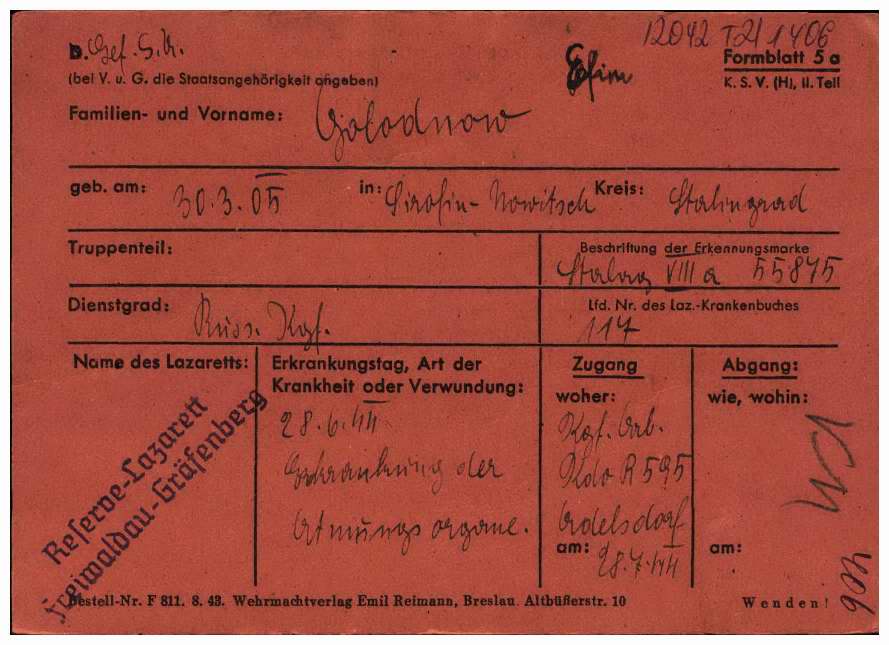 12042 T21 1406
D. Gef. S.U.
Formblatt 5 a
(bei V. u. G. die Staatsangehörigkeit angeben)
Efim
K. S. V. (H), II. Teil
Familien- und Vorname: Golodnow
geb. am: 30.3.05 in: Sirotin-Nowitsch Kreis: Stalingrad
Truppenteil:
Beschriftung der Erkennungsmarke
Stalag VIII a 55875
Dienstgrad: Russ. Kgf.
Lfd. Nr. des Laz.-Krankenbuches
117
Name des Lazaretts:
Reserve-Lazarett
Freiwaldau-Gräfenberg
Erkrankungstag, Art der
Krankheit oder Verwundung:
28.6.44
Erkrankung der
Atmungsorgane.
Zugang
woher:
Kgf. Arb.
Kdo R 595
Adelsdorf
am: 28.7.44
Abgang:
wie, wohin:
am:
Bestell-Nr. F 811. 8. 43. Wehrmachtverlag Emil Reimann, Breslau. Altbüßerstr. 10
Wenden!